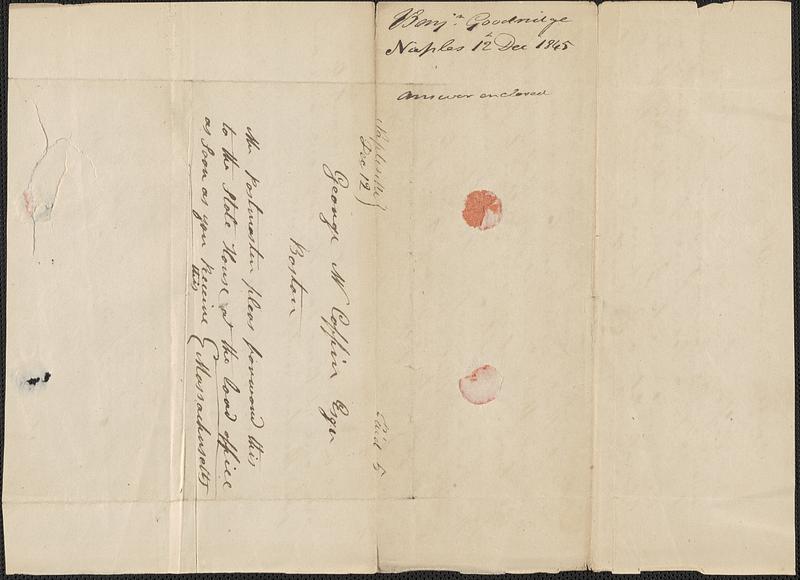 Benjn. Goodridge
Naples 12 Dec 1845
answer enclosed
Naples Me
Dec 12
Paid 5
George W Coffin Esqr
Boston
Mr Postmaster pleas forword this
to the State House at the land office
as soon as you receive this
Massachusetts